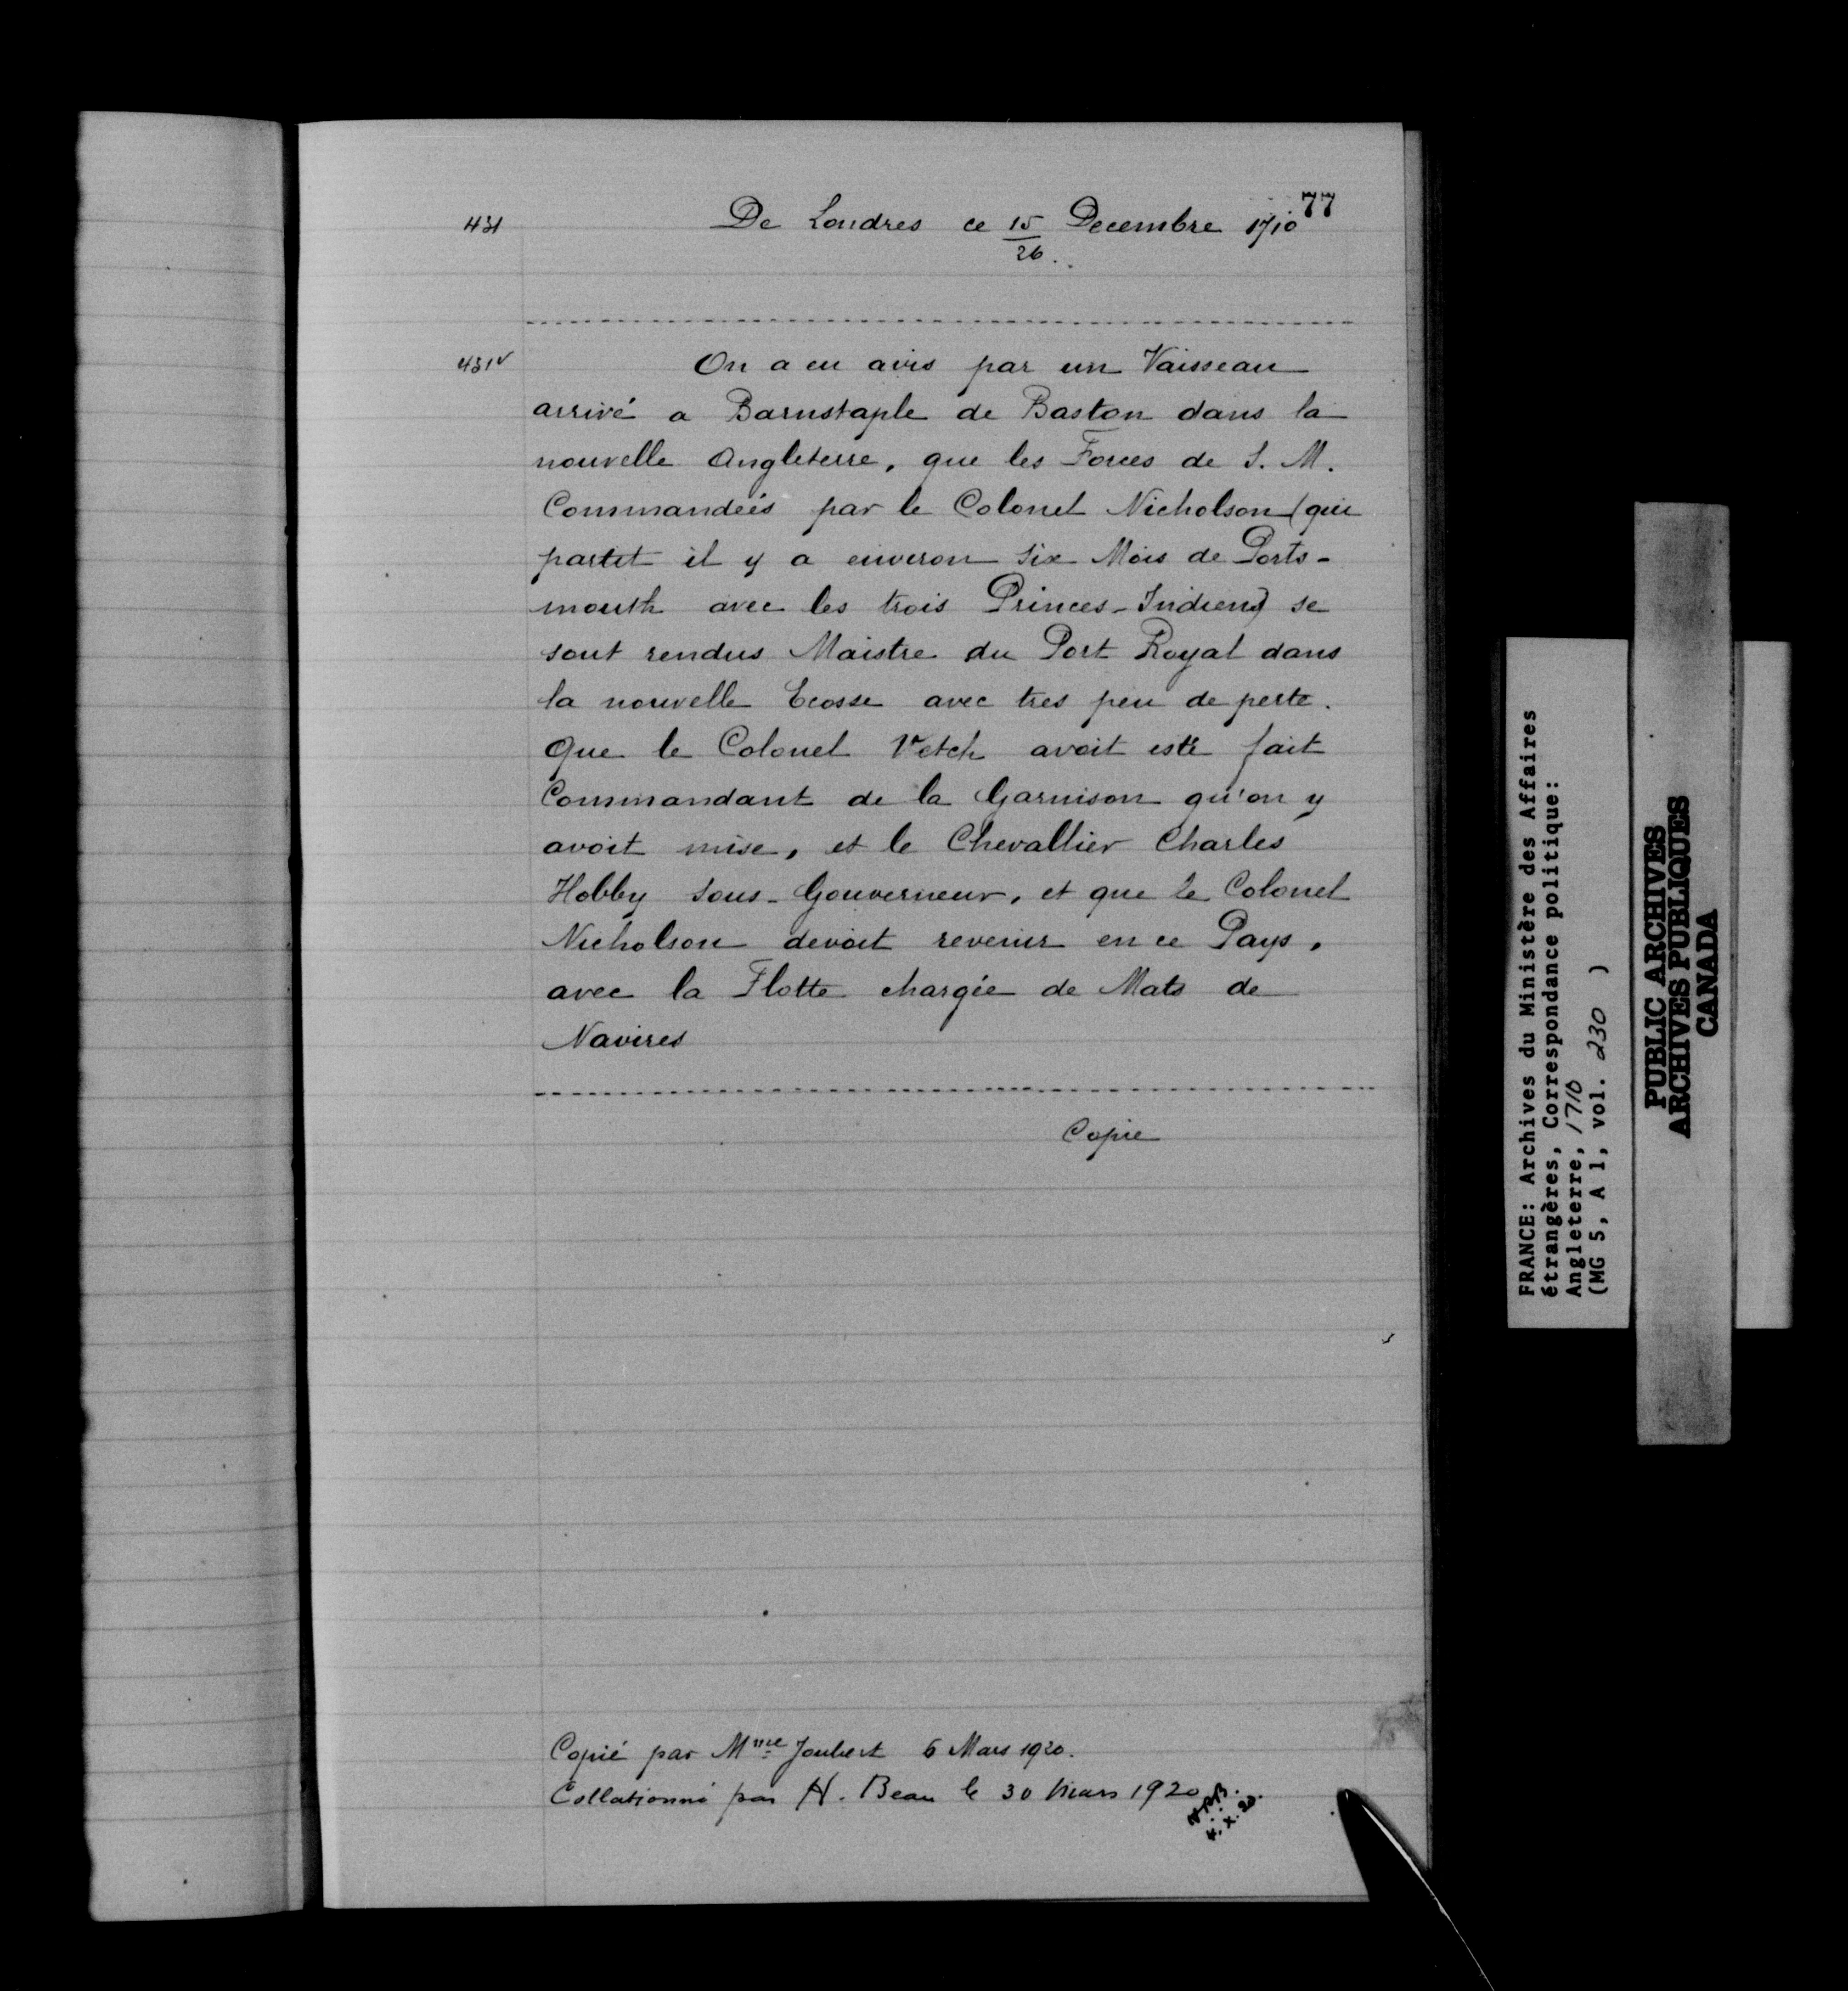 77
431 De Londres ce 15/26. Decembre 1710
431v On a eu avis par un Vaisseau
arrivé a Barnstaple de Baston dans la
nouvelle Angleterre, que les Forces de S. M.
Commandées par le Colonel Nicholson (qui
partit il y a environ six Mois de Ports-
mouth avec les trois Princes-Indiens) se
sont rendus Maistre du Port Royal dans
la nouvelle Ecosse avec tres peu de perte.
Que le Colonel Vetch avoit esté fait
Commandant de la Garnison qu'on y
avoit mise, et le Chevallier Charles
Hobby sous-Gouverneur, et que le Colonel
Nicholson devoit revenir en ce Pays,
avec la Flotte chargée de Mats de
Navires
Copie
Copié par Mme Joubert 6 Mars 1920.
Collationné par H. Beau le 30 Mars 1920
4.X.20.
FRANCE: Archives du Ministère des Affaires
étrangères, Correspondance politique:
Angleterre, 1710
(MG 5, A 1, vol. 230 )
PUBLIC ARCHIVES
ARCHIVES PUBLIQUES
CANADA